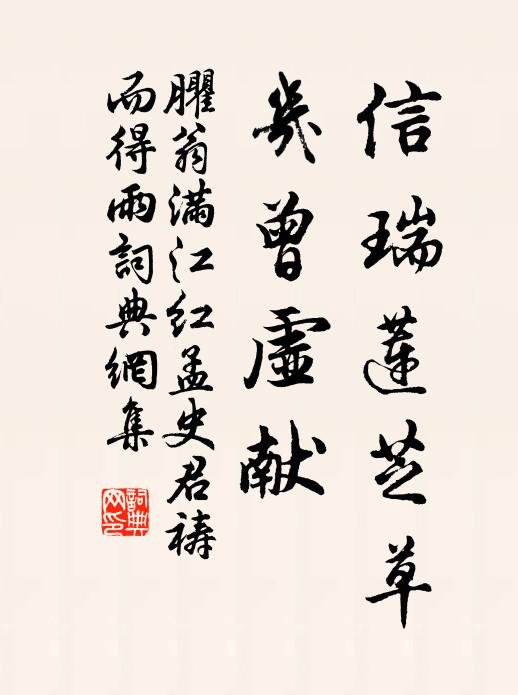 信瑞蓮芝草
幾曾虛献
臞翁满江红孟史君祷
而得雨詞典網集
詞典網印